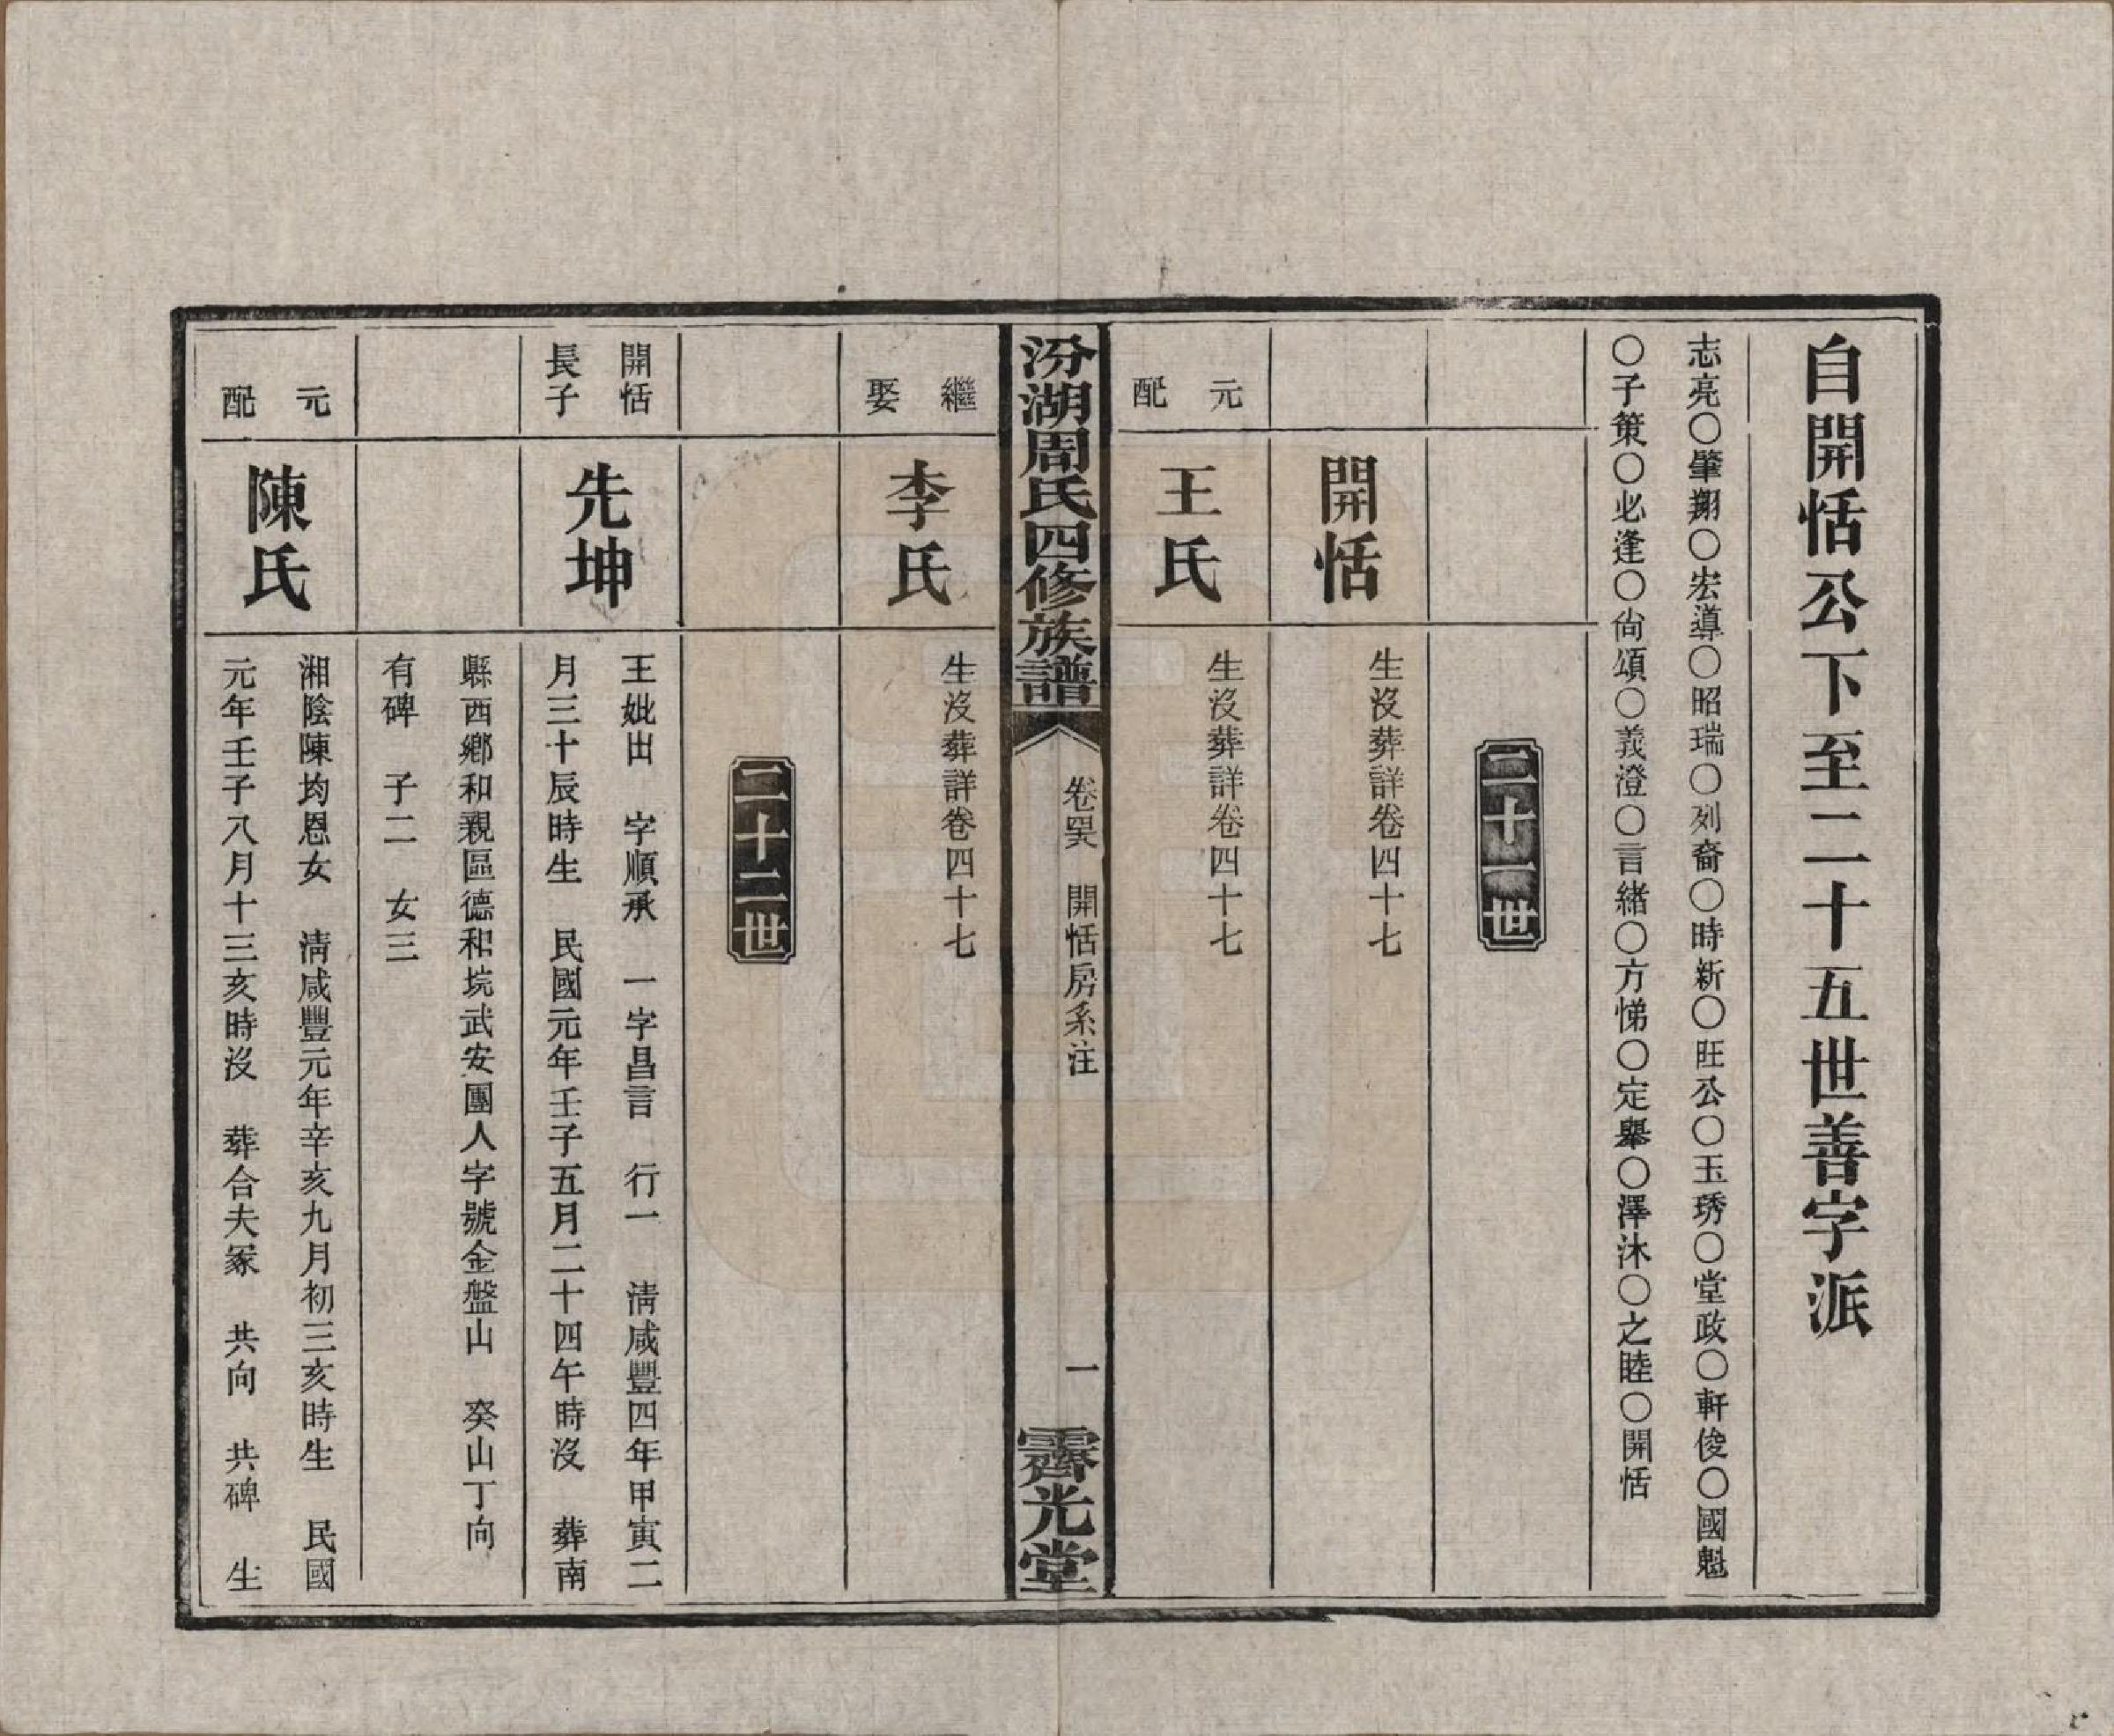 自開恬公下至二十五世善字派
志亮〇肇翔〇宏導〇昭瑞〇列裔〇時新〇旺公〇玉琇〇堂政〇軒俊〇國魁
〇子策〇必逢〇尙頌〇義澄〇言緒〇方悌〇定舉〇澤沐〇之睦〇開恬
二十一世
開恬
生沒葬詳卷四十七
元配
王氏
生沒葬詳卷四十七
汾湖周氏四修族譜
卷四六 開恬房系注
一
霽光堂
繼娶
李氏
生沒葬詳卷四十七
二十二世
開恬
長子
先坤
王妣出 字順承 一字昌言 行一 淸咸豐四年甲寅二
月三十辰時生 民國元年壬子五月二十四午時沒 葬南
縣西鄉和親區德和垸武安團人字號金盤山 癸山丁向
有碑 子二 女三
元配
陳氏
湘陰陳均恩女 淸咸豐元年辛亥九月初三亥時生 民國
元年壬子八月十三亥時沒 葬合夫冢 共向 共碑 生